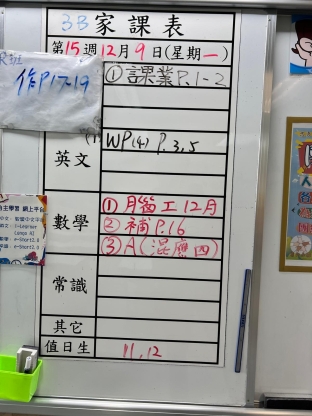 3B家課表
第15週12月9日(星期一)
作P.17-19
①課業P.1-2
英文
WP(4) P.3,5
數學
①腦工12月
②補P.16
③A(混應四)
常識
其它
值日生
11,12
自主學習 網上平台